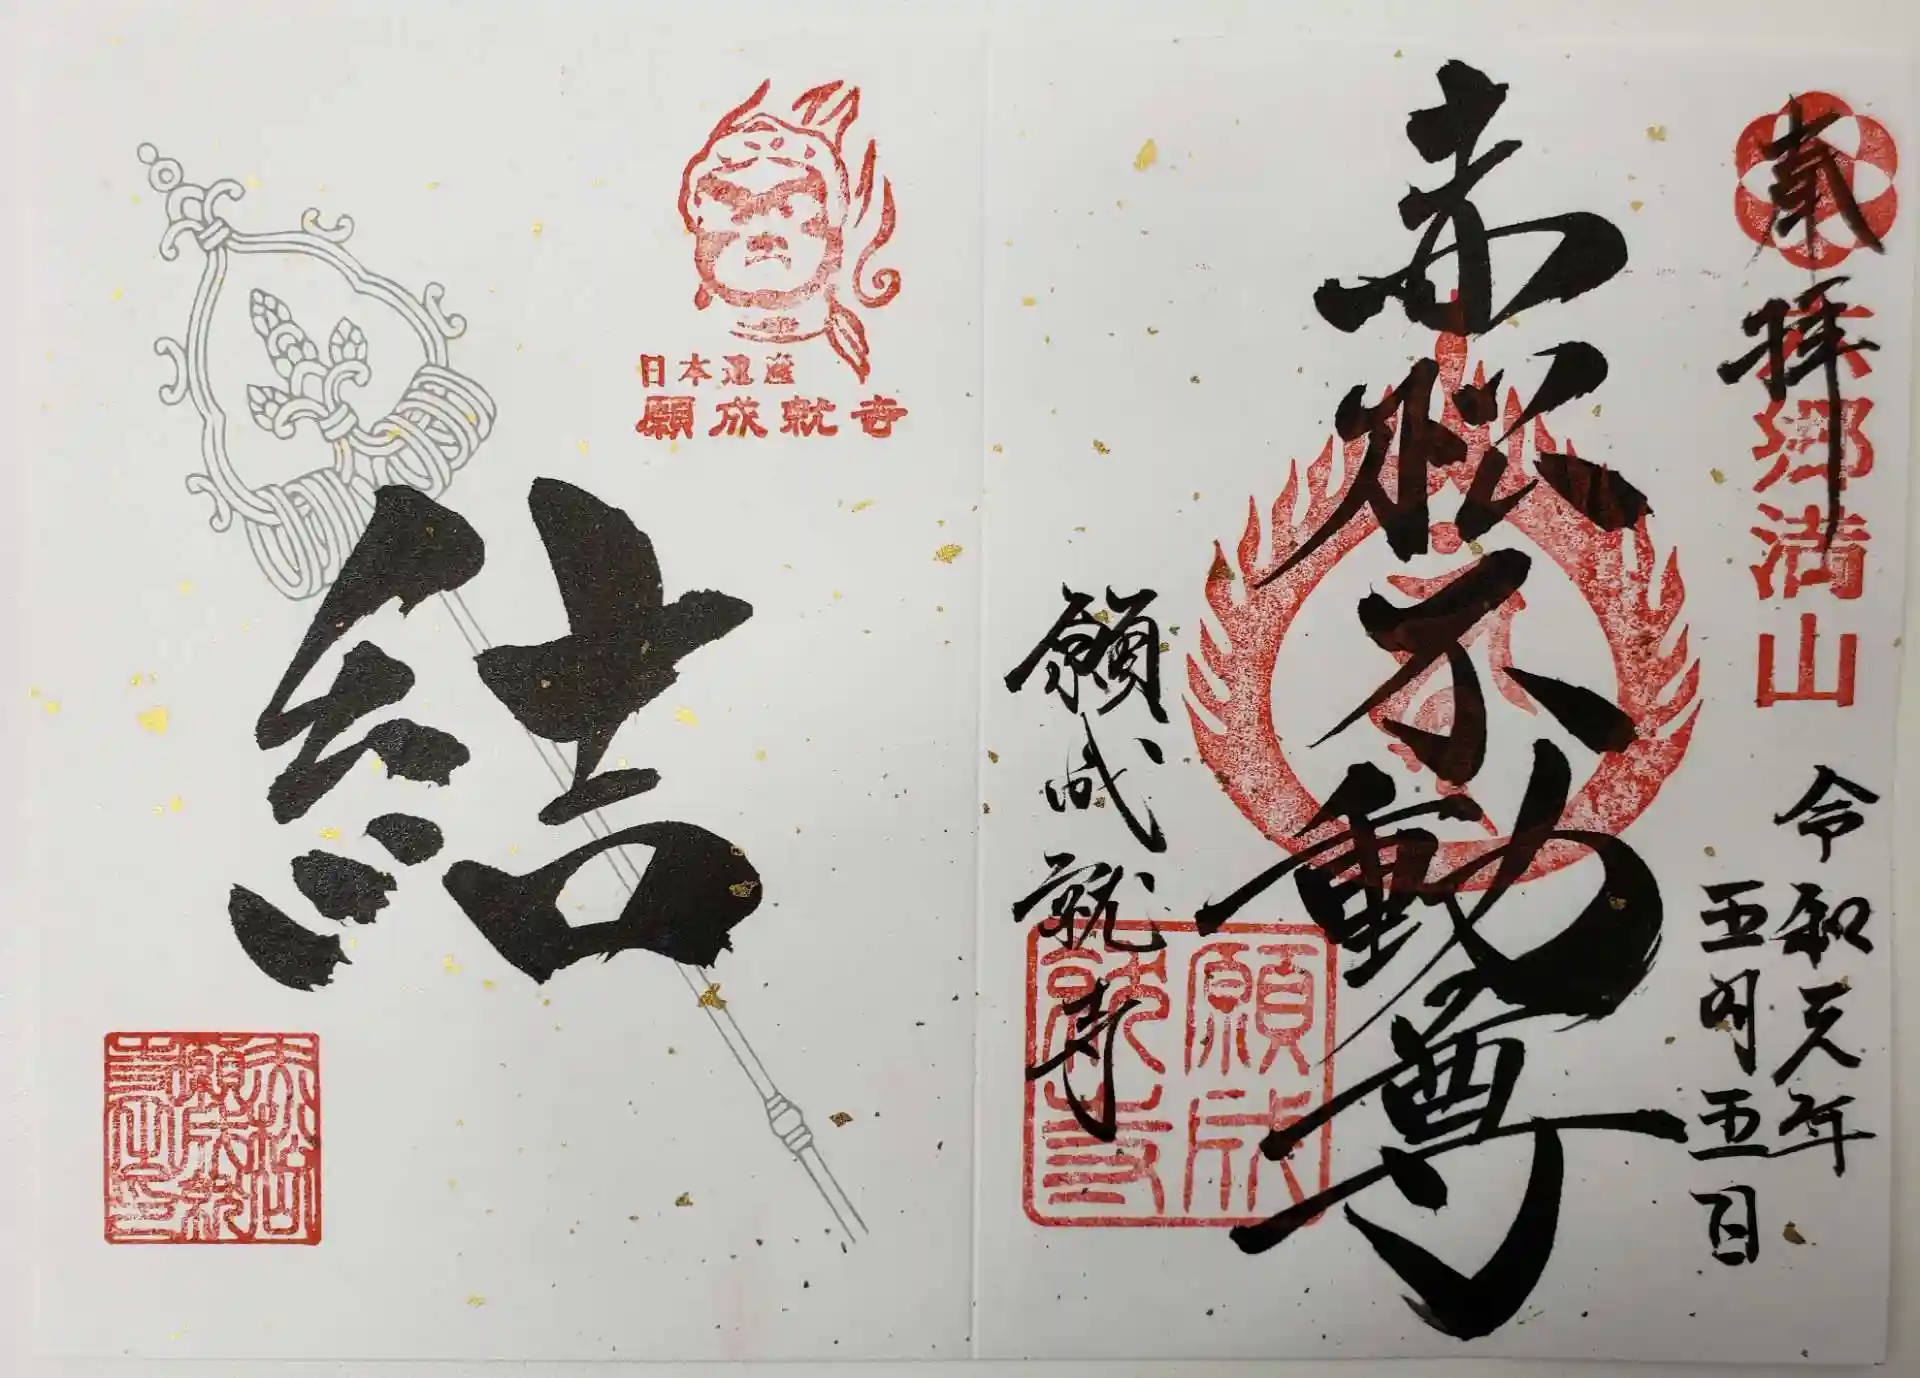 奉拝
六郷満山
令和元年
五月五日
赤松不動尊
願成就寺
願成
就寺
日本遺産
願成就寺
結
赤松山
願成就
寺之印